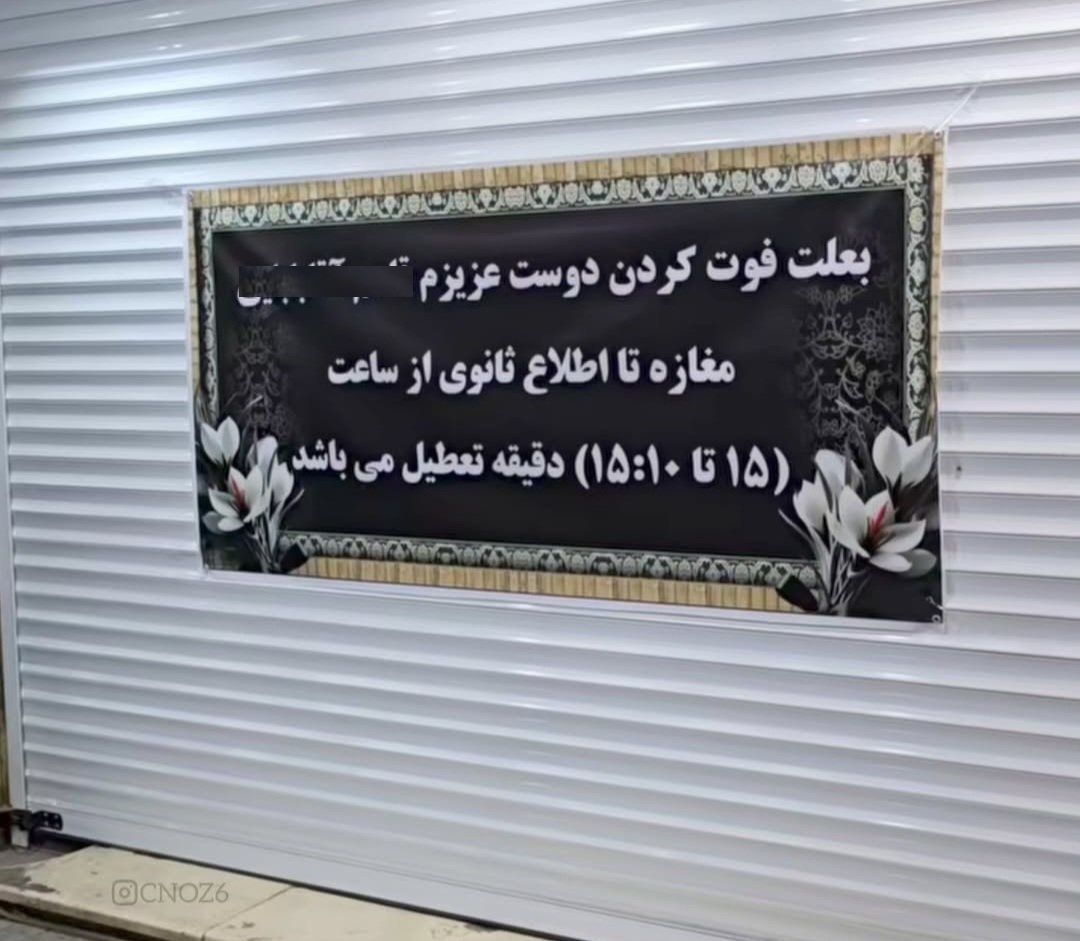 بعلت فوت کردن دوست عزیزم
مغازه تا اطلاع ثانوی از ساعت
(۱۵ تا ۱۵:۱۰) دقیقه تعطیل می باشد
CNOZ6